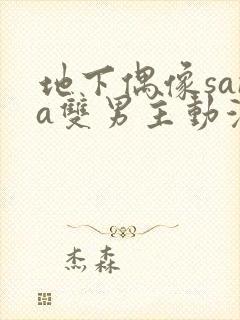 地下偶像sa
a雙男主動
杰森